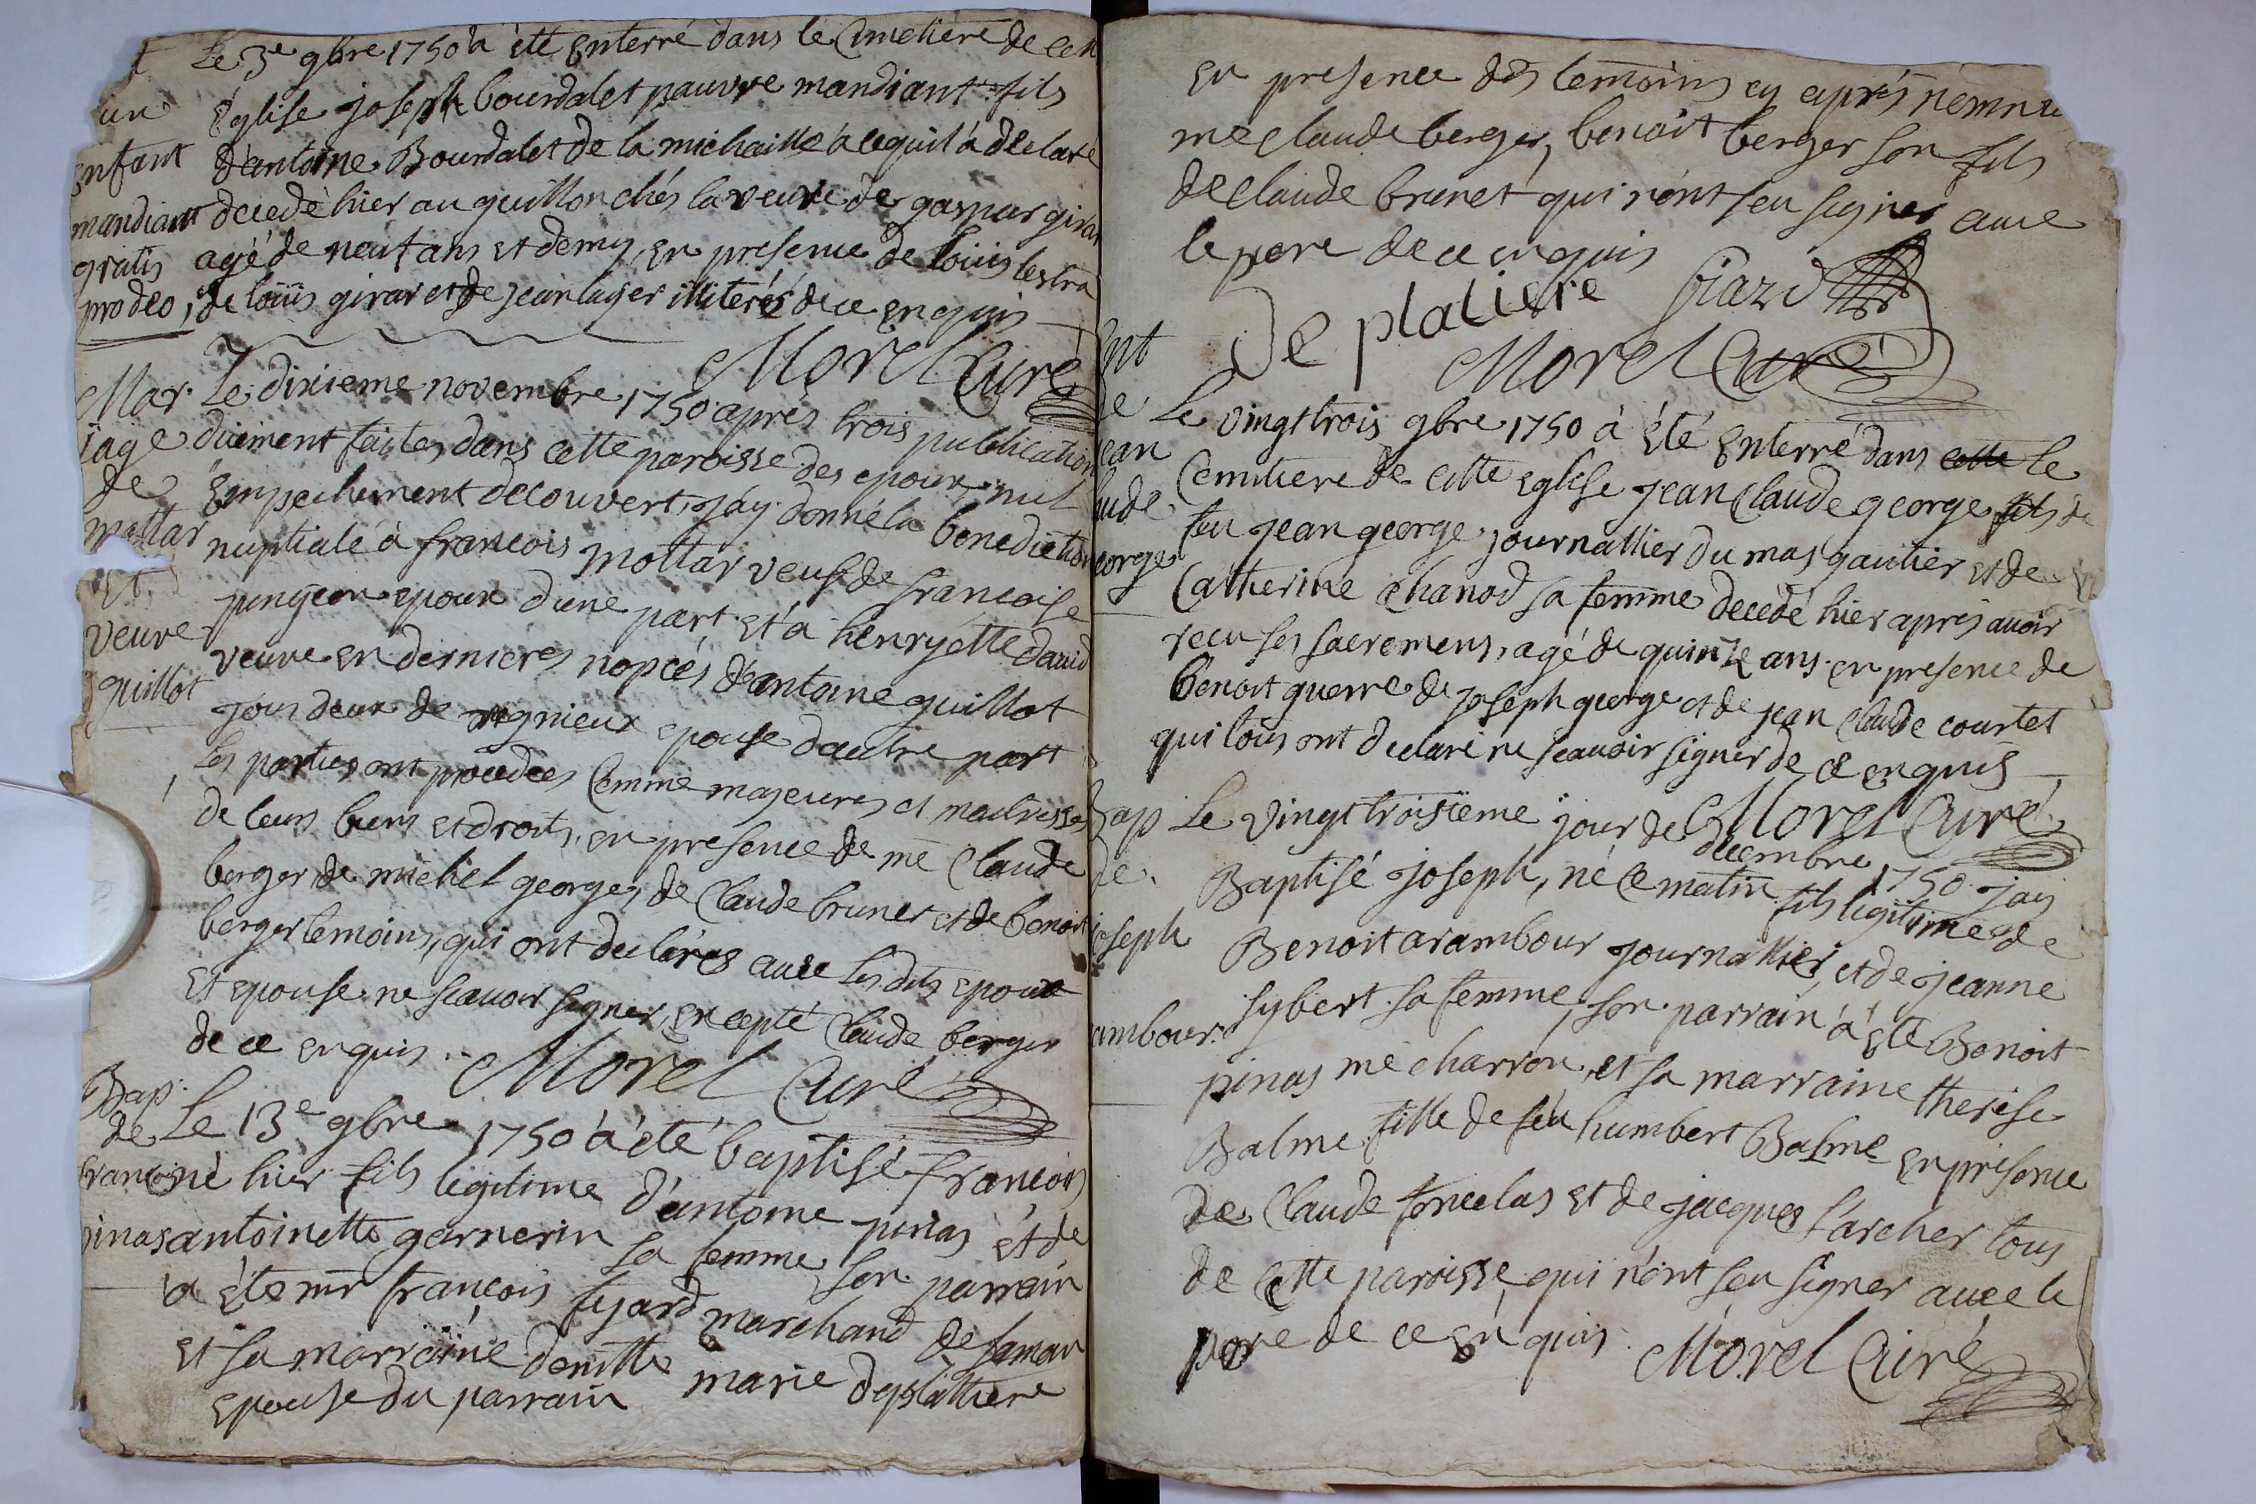 Le 3e 9bre 1750 à été Enterré dans le Cimetiere de cett
un
église joseph bourdalet pauvre mandiant fils
Enfant
d'antoine Bourdalet de la michaille à ce quil à declaré
mandiant
decedé hier au guillon chés la veuve de gaspar girar
gratis
agé de neuf ans et demy, en presence de louis lestra
pro deo
de louis girar et de jean layer illiterés de ce enquis
Morel Curé
Mar
Le dixieme novembre 1750 aprés trois publication
iage
duement faites dans cette paroisse des epoux, nul
de
Empechement decouvert, jay donné la benediction
mottar
nuptiale à francois mottar veuf de francoise
Et
pingeon epoux d'une part, et à henryette david
veuve
veuve en dernieres nopces d'antoine guillot
guillot
tous deux de rignieux epouse d'autre part
les parties ont procedées Comme majeures et maitresses
de leurs biens et droits, en presence de me Claude
berger, de michel george, de Claude brunet et de benoit
berger temoins, qui ont declarés avec les dits epoux
et epouse ne scavoir signer, excepté Claude berger
de ce enquis. Morel Curé
Bap
de
Le 13e 9bre 1750 à été baptisé francois
francois
né hier fils legitime d'antoine pinas et de
pinas
antoinette garnerin sa femme, son parrain
à été mr francois fijard marchand de
et sa marraine demlle marie deplattiere
epouse du parrain
en presence des temoins cy aprés nommé
me claude berger, benoit berger son fils
de claude brunet qui n'ont sceu signer avec
le pere de ce enquis
De platiere
Morel Curé
Ent
de
Le vingt trois 9bre 1750 à été Enterré dans cette le
jean
Cemitiere de cette Eglise jean Claude george fils de
laude
feu jean george journallier du mas gautier et de
george
Catherine Chanod sa femme decedé hier aprés avoir
recu ses sacremens, agé de quinze ans en presence de
benoit guerre de joseph george et de jean Claude courtet
qui tous ont declaré ne scavoir signer de ce enquis
Morel Curé
Bap
Le vingt troisieme jour de decembre 1750 jay
de
Baptisé joseph, né ce matin fils legitime de
joseph
Benoit arambour journallier, et de jeanne
sybert sa femme, son parrain à été Benoit
ambour
pinas me charron, et sa marraine therese
Balme fille de feu humbert Balme en presence
de Claude foncelas et de jacques larcher tous
de cette paroisse qui n'ont sceu signer avec le
pere de ce enquis. Morel Curé